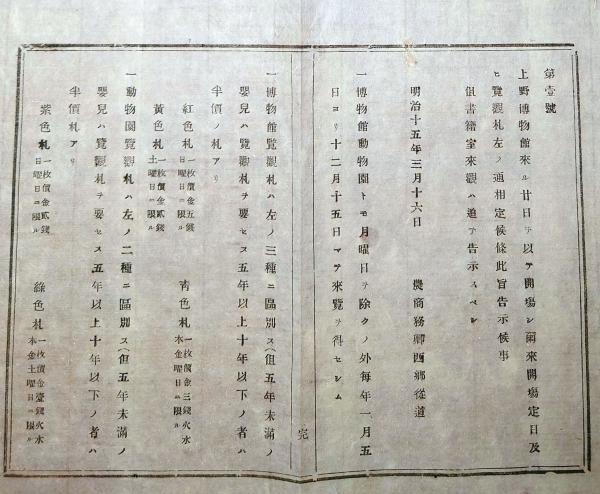 第壹號
上野博物館來ル廿日ヲ以テ開場シ爾來開場定日及
ヒ覽觀札左ノ通相定候條此旨告示候事
但書籍室來觀ハ追テ告示スベシ
明治十五年三月十六日 農商務卿西郷從道
一博物館動物園トモ月曜日ヲ除クノ外毎年一月五
日ヨリ十二月十五日マテ來覽ヲ得セシム
完
一博物館覽觀札ハ左ノ三種ニ區別ス(但五年未滿ノ
嬰兒ハ覽觀札ヲ要セス五年以上十年以下ノ者ハ
半價ノ札アリ
紅色札 一枚價金五錢 日曜日ニ限ル 靑色札 一枚價金三錢火水木金曜日ニ限ル
黃色札 一枚價金貳錢 土曜日ニ限ル
一動物園覽觀札ハ左ノ二種ニ區別ス(但五年未滿ノ
嬰兒ハ覽觀札ヲ要セス五年以上十年以下ノ者ハ
半價札アリ
紫色札 一枚價金貳錢 日曜日ニ限ル 綠色札 一枚價金壹錢火水木金土曜日ニ限ル